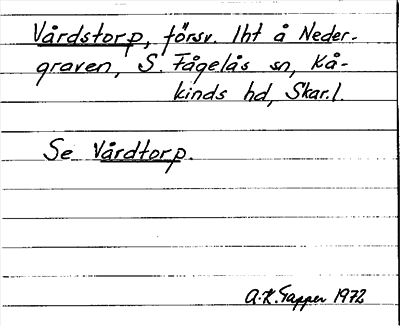 Vårdstorp, försv. lht å Neder-
graven, S. Fågelås sn, Kå-
kinds hd, Skar.l.
Se Vårdtorp.
A.K. Tapper 1972